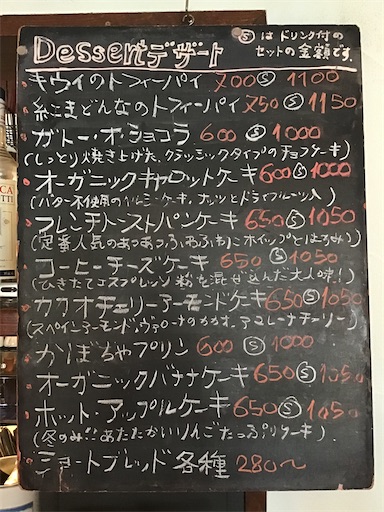 Dessert デザート
Ⓢ は ドリンク付の
セットの金額です。
キウイのトフィーパイ 700 Ⓢ 1100
紅まどんなのトフィーパイ 750 Ⓢ 1150
ガトー・オ・ショコラ 600 Ⓢ 1000
(しっとり焼き上げた、クラッシックタイプのチョコケーキ)
オーガニックキャロットケーキ 600 Ⓢ 1000
(バター不使用の ケーキ。ナッツとドライフルーツ入)
フレンチトーストパンケーキ 650 Ⓢ 1050
(定番人気のあつあつふわふわ! ホイップとはちみつ)
コーヒーチーズケーキ 650 Ⓢ 1050
(ひきたてエスプレッソ粉を混ぜ込んだ大人味!)
カカオチェリーアーモンドケーキ 650 Ⓢ 1050
(スペインアーモンド、ヴァローナのカカオ、アマレーナチェリー)
かぼちゃプリン 600 Ⓢ 1000
オーガニックバナナケーキ 650 Ⓢ 1050
ホット・アップルケーキ 650 Ⓢ 1050
(冬のみ!! あたたかいりんごたっぷりケーキ)
ショートブレッド各種 280〜